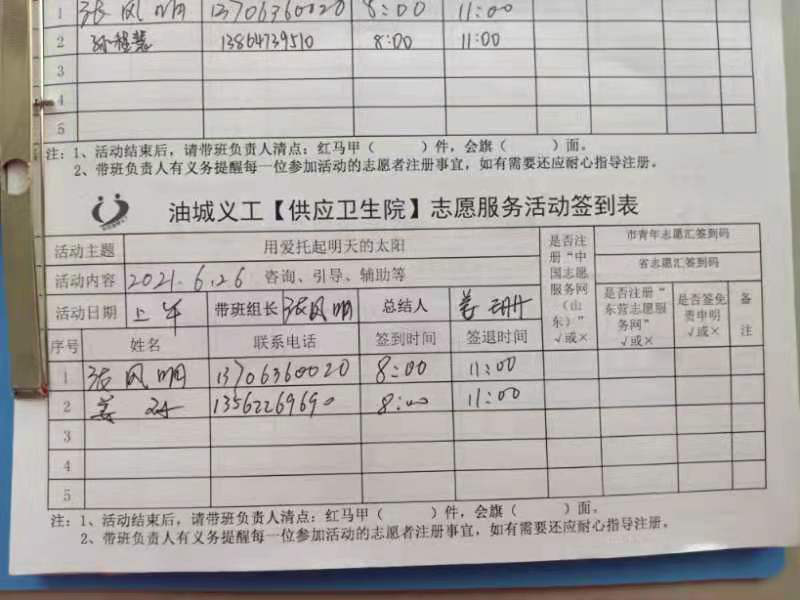 1 张风明 13706360020 8:00 11:00
2 孙程慧 13864739510 8:00 11:00
3
4
5
注：1、活动结束后，请带班负责人清点：红马甲（ ）件，会旗（ ）面。
2、带班负责人有义务提醒每一位参加活动的志愿者注册事宜，如有需要还应耐心指导注册。
油城义工【供应卫生院】志愿服务活动签到表
活动主题 用爱托起明天的太阳 是否注册“中国志愿服务网（山东）”√或× 市青年志愿汇签到码
活动内容 2021.6.26 咨询、引导、辅助等 省志愿汇签到码
活动日期 上午 带班组长 张风明 总结人 姜 是否注册“东营志愿服务网”√或× 是否签免责申明√或× 备注
序号 姓名 联系电话 签到时间 签退时间
1 张风明 13706360020 8:00 11:00
2 姜 13562269690 8:00 11:00
3
4
5
注：1、活动结束后，请带班负责人清点：红马甲（ ）件，会旗（ ）面。
2、带班负责人有义务提醒每一位参加活动的志愿者注册事宜，如有需要还应耐心指导注册。